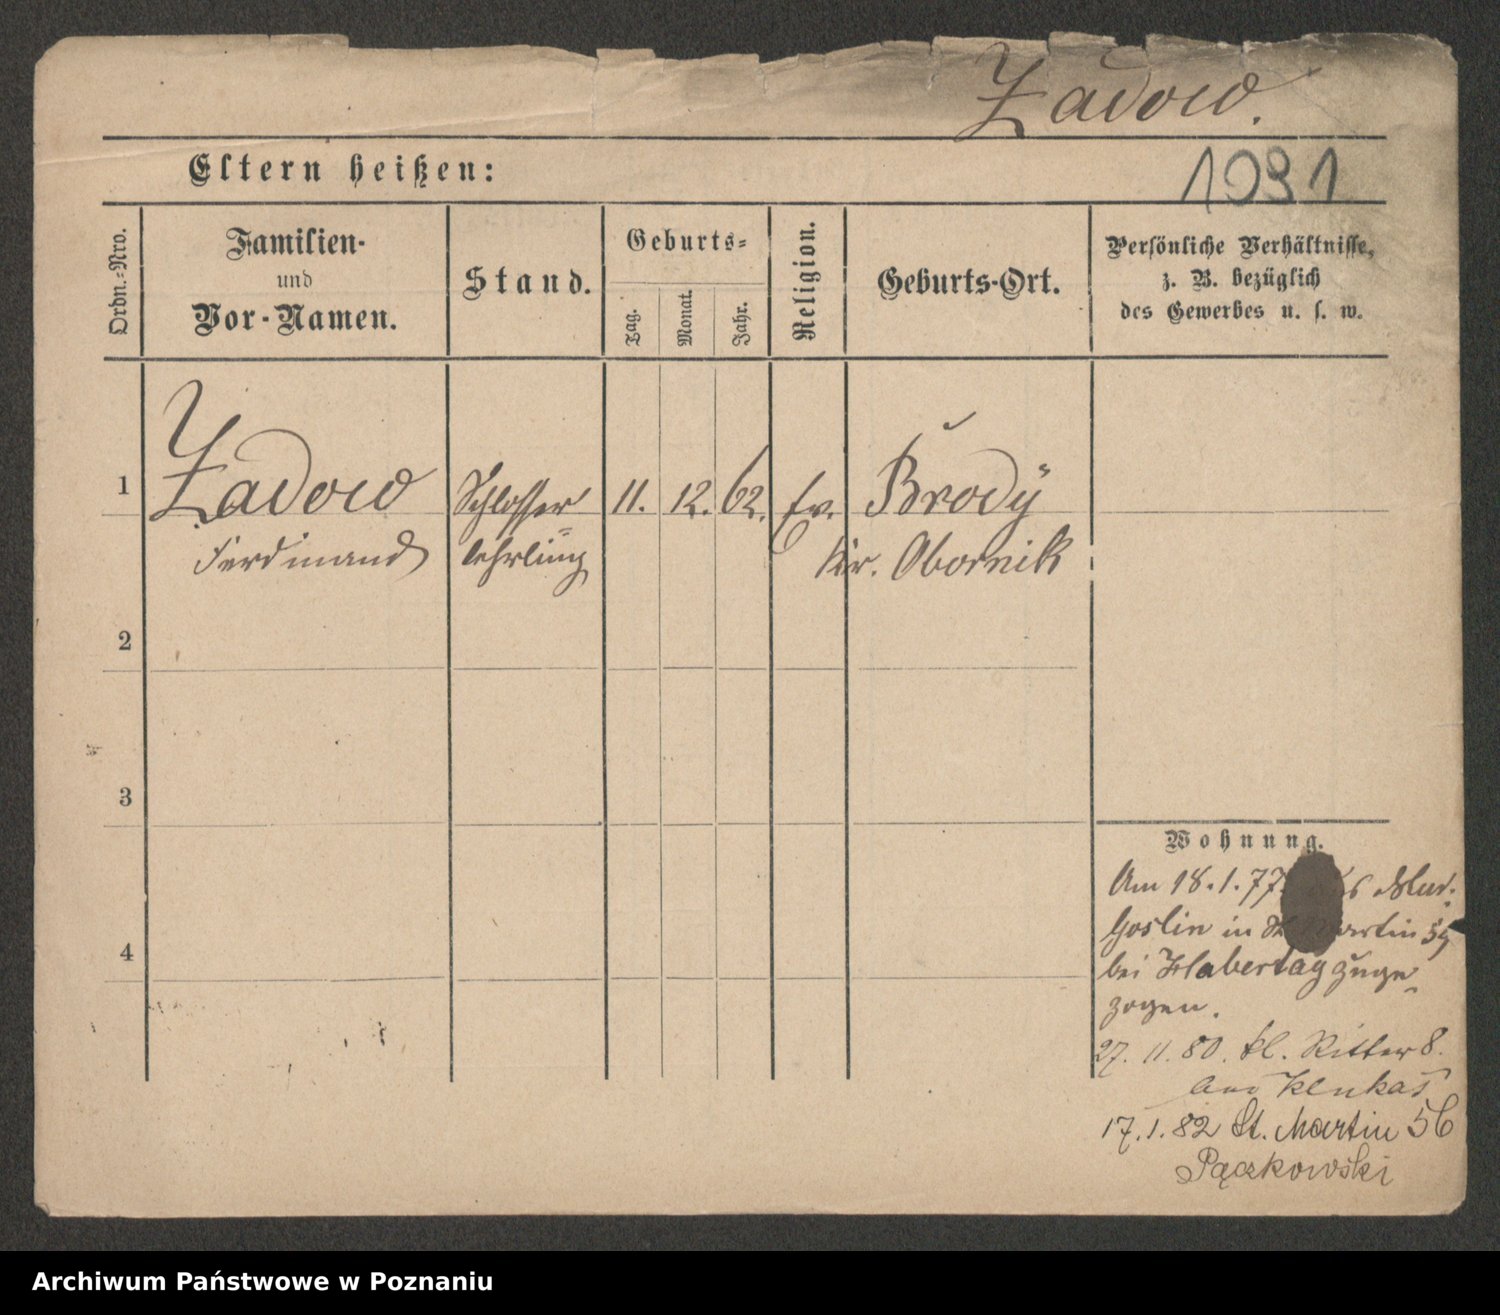 Zadow.
Eltern heißen:
1091
Ordn.-Nro.
Familien-
und
Vor-Namen.
Stand.
Geburts-
Tag.
Monat.
Jahr.
Religion.
Geburts-Ort.
Persönliche Verhältnisse,
z. B. bezüglich
des Gewerbes u. s. w.
1 Zadow Schlosser 11. 12. 62. Ev. Brody
Ferdinand lehrling Kr. Obornik
2
3
4
Wohnung.
Am 18.1.77. aus Mur.
Goslin in St. Martin
bei Habertag zuge-
zogen.
27. 11. 80. kl. Ritter 8.
17. 1. 82 St. Martin 56
Pączkowski
Archiwum Państwowe w Poznaniu